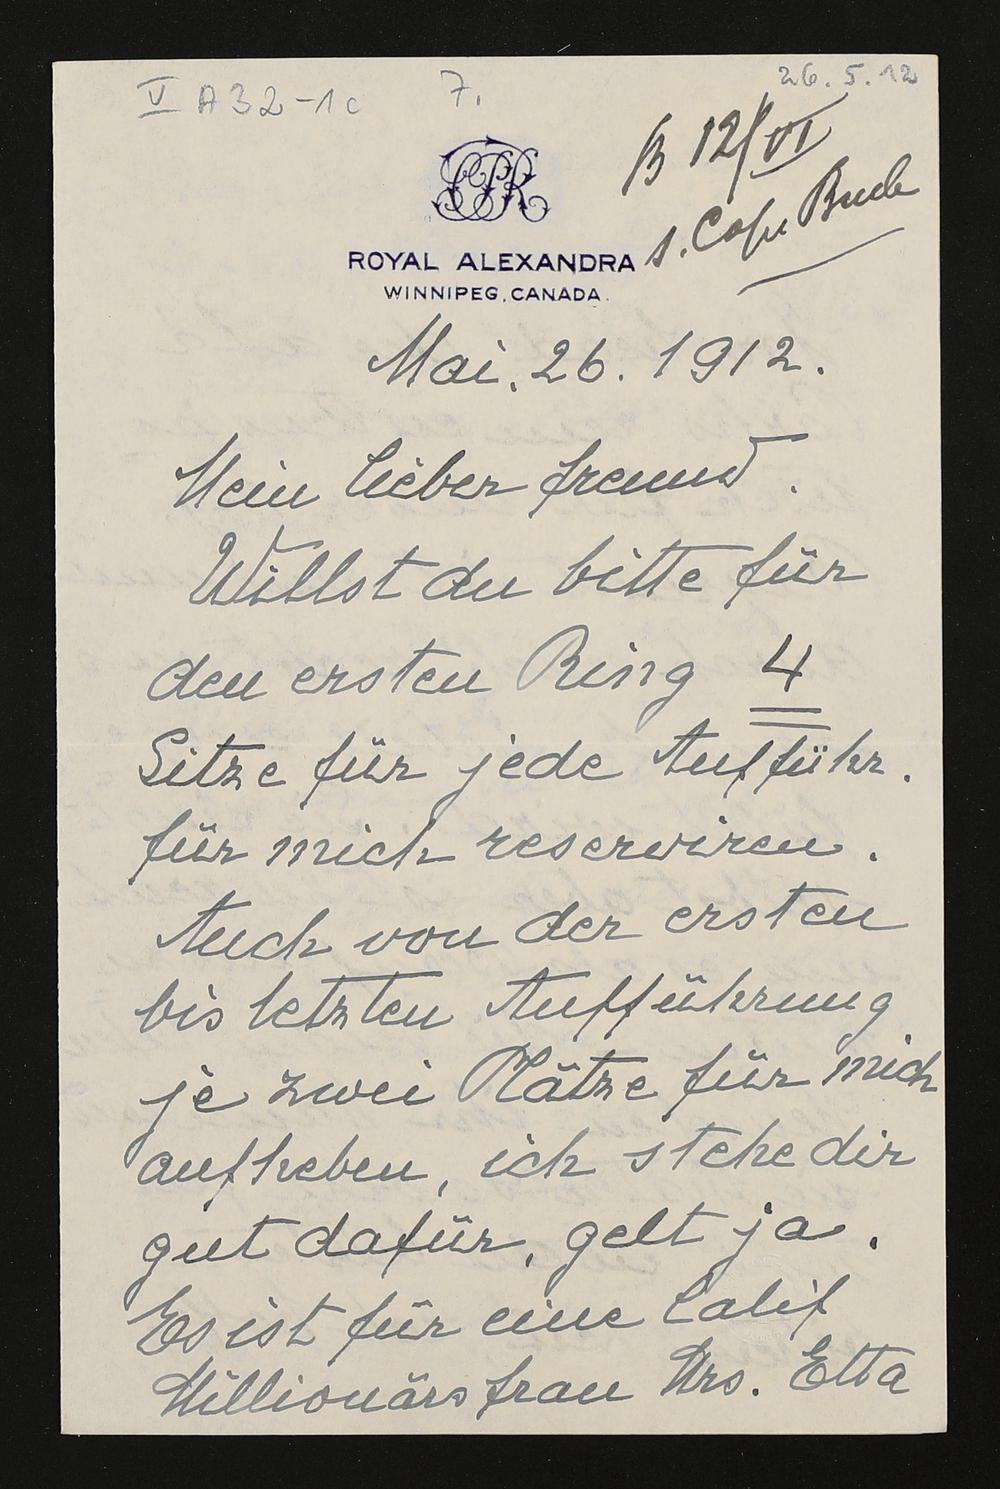 V A32-1c
7.
26.5.12
B 12/VI
s. Copie Buch
CPR
ROYAL ALEXANDRA
WINNIPEG, CANADA.
Mai. 26. 1912.
Mein lieber Freund.
Willst du bitte für
den ersten Ring 4
Sitze für jede Aufführ.
für mich reserwiren.
Auch von der ersten
bis letzten Aufführung
je zwei Plätze für mich
aufheben, ich stehe dir
gut dafür, gelt ja.
Es ist für eine Calif
Millionärsfrau Mrs. Etta